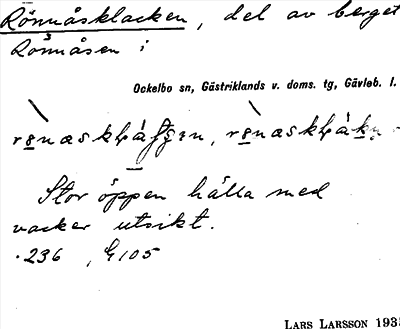 Rönnåsklacken, del av berget
Rönnåsen i
Ockelbo sn, Gästriklands v. doms. tg, Gävleb. l.
Stor öppen hälla med
vacker utsikt.
.236
LARS LARSSON 193